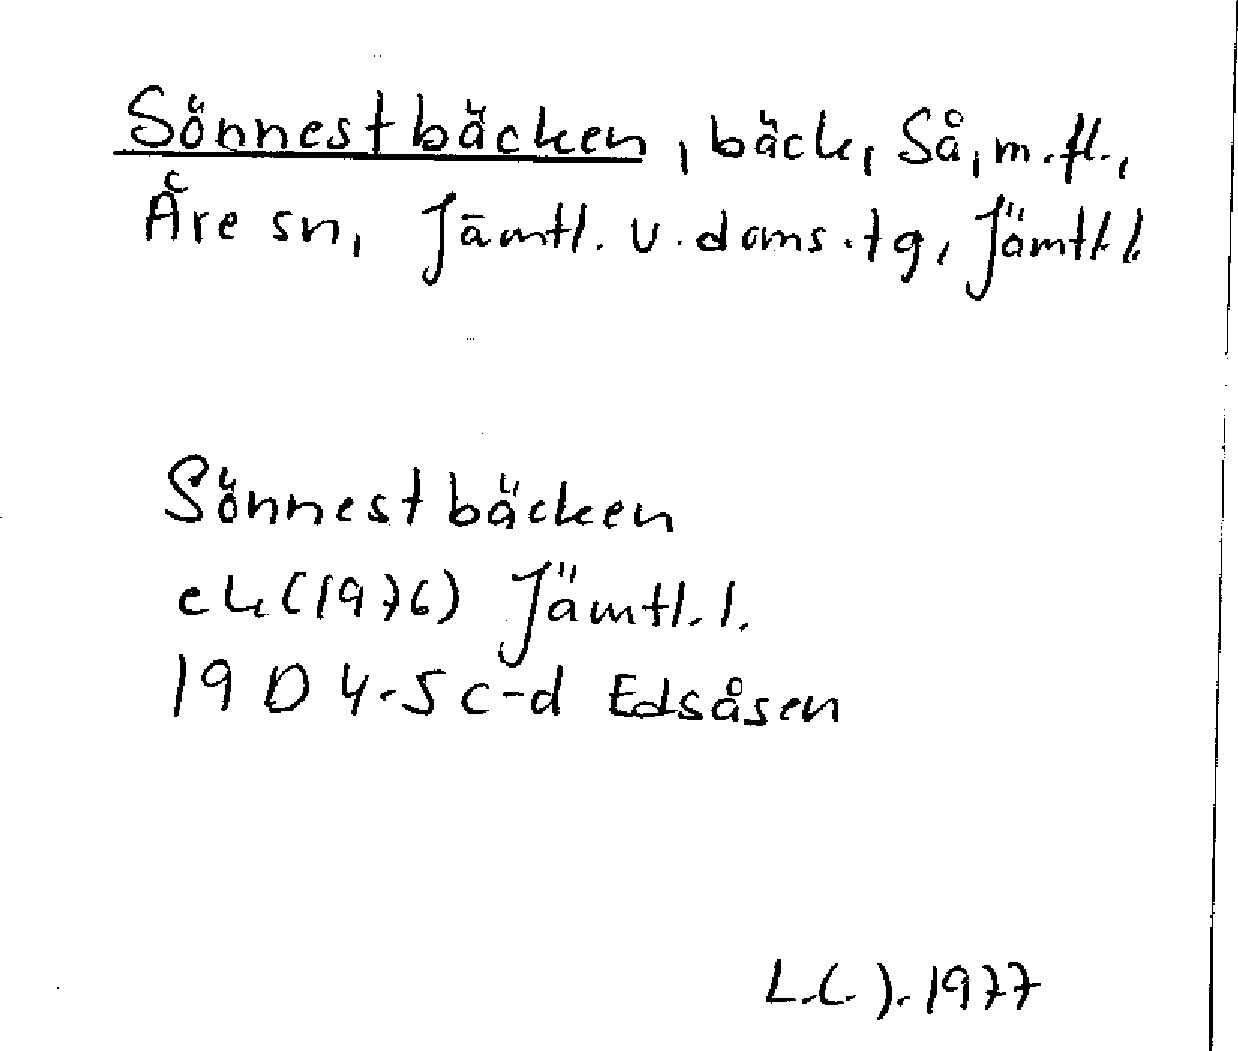 Sönnestbäcken, bäck, Så, m.fl.,
Åre sn, Jämtl. v. doms.tg, Jämtl. l.
Sönnestbäcken
ek (1976) Jämtl. l.
19 D 4-5 c-d Edsåsen
1977